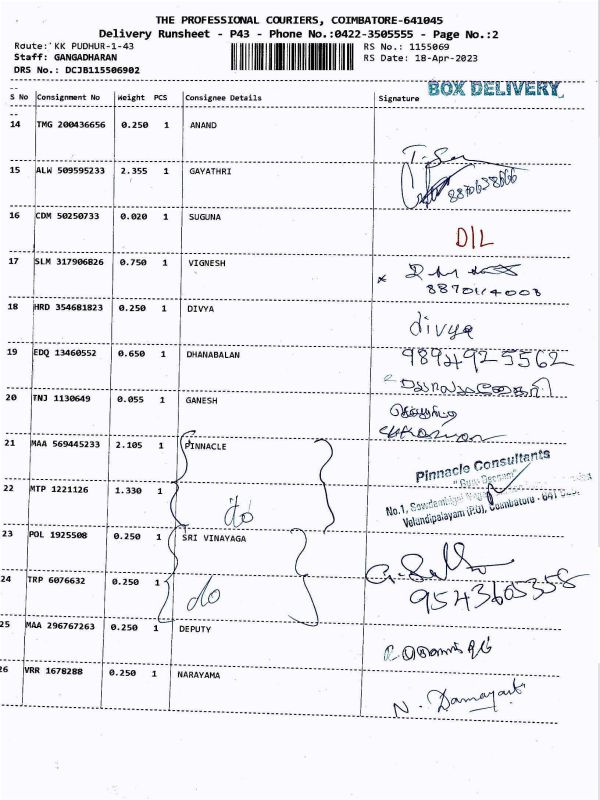 THE PROFESSIONAL COURIERS, COIMBATORE-641045
Delivery Runsheet - P43 - Phone No.:0422-3505555 - Page No.:2
Route: KK PUDHUR-1-43 RS No.: 1155069
Staff: GANGADHARAN RS Date: 18-Apr-2023
DRS No.: DCJB115506902
BOX DELIVERY
S No Consignment No Weight PCS Consignee Details Signature
14 TMG 200436656 0.250 1 ANAND
15 ALW 509595233 2.355 1 GAYATHRI
8870638666
16 CDM 50250733 0.020 1 SUGUNA
D/L
17 SLM 317906826 0.750 1 VIGNESH
8870114003
18 HRD 354681823 0.250 1 DIVYA
divya
19 EDQ 13460552 0.650 1 DHANABALAN
9894925562
20 TNJ 1130649 0.055 1 GANESH
21 MAA 569445233 2.105 1 PINNACLE
Pinnacle Consultants
22 MTP 1221126 1.330 1
do
No.1,
Velandipalayam (P.O), Coimbatore - 641
23 POL 1925508 0.250 1 SRI VINAYAGA
24 TRP 6076632 0.250 1
do
9543605358
25 MAA 296767263 0.250 1 DEPUTY
26 VRR 1678288 0.250 1 NARAYAMA
N. Damayanti